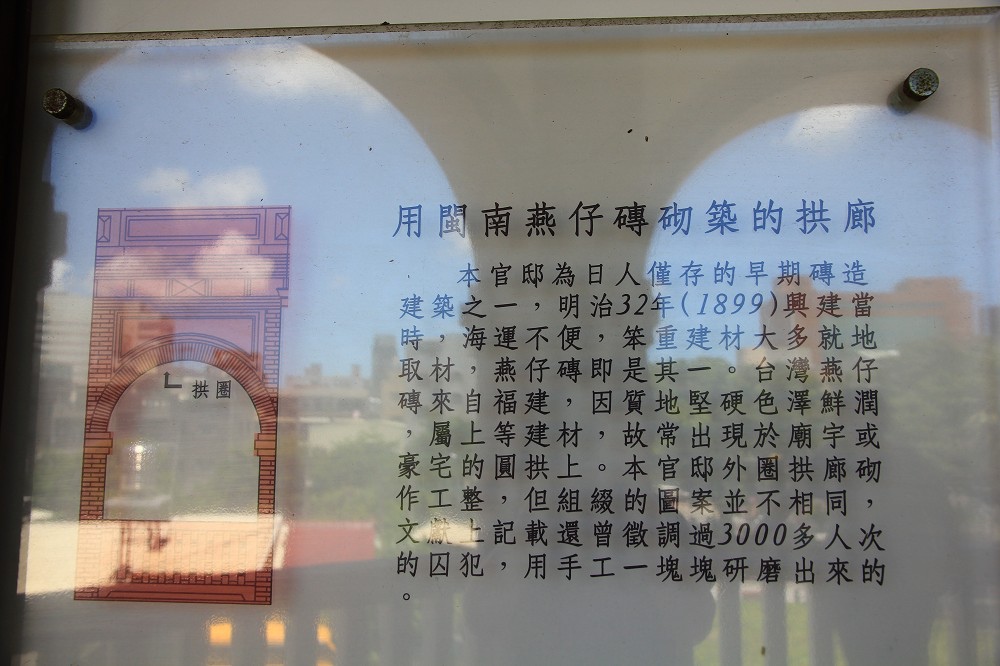 用閩南燕仔磚砌築的拱廊
本官邸為日人僅存的早期磚造
建築之一，明治32年(1899)興建當
時，海運不便，笨重建材大多就地
取材，燕仔磚即是其一。台灣燕仔
磚來自福建，因質地堅硬色澤鮮潤
，屬上等建材，故常出現於廟宇或
豪宅的圓拱上。本官邸外圈拱廊砌
作工整，但組綴的圖案並不相同，
文獻上記載還曾徵調過3000多人次
的囚犯，用手工一塊塊研磨出來的
。
拱圈